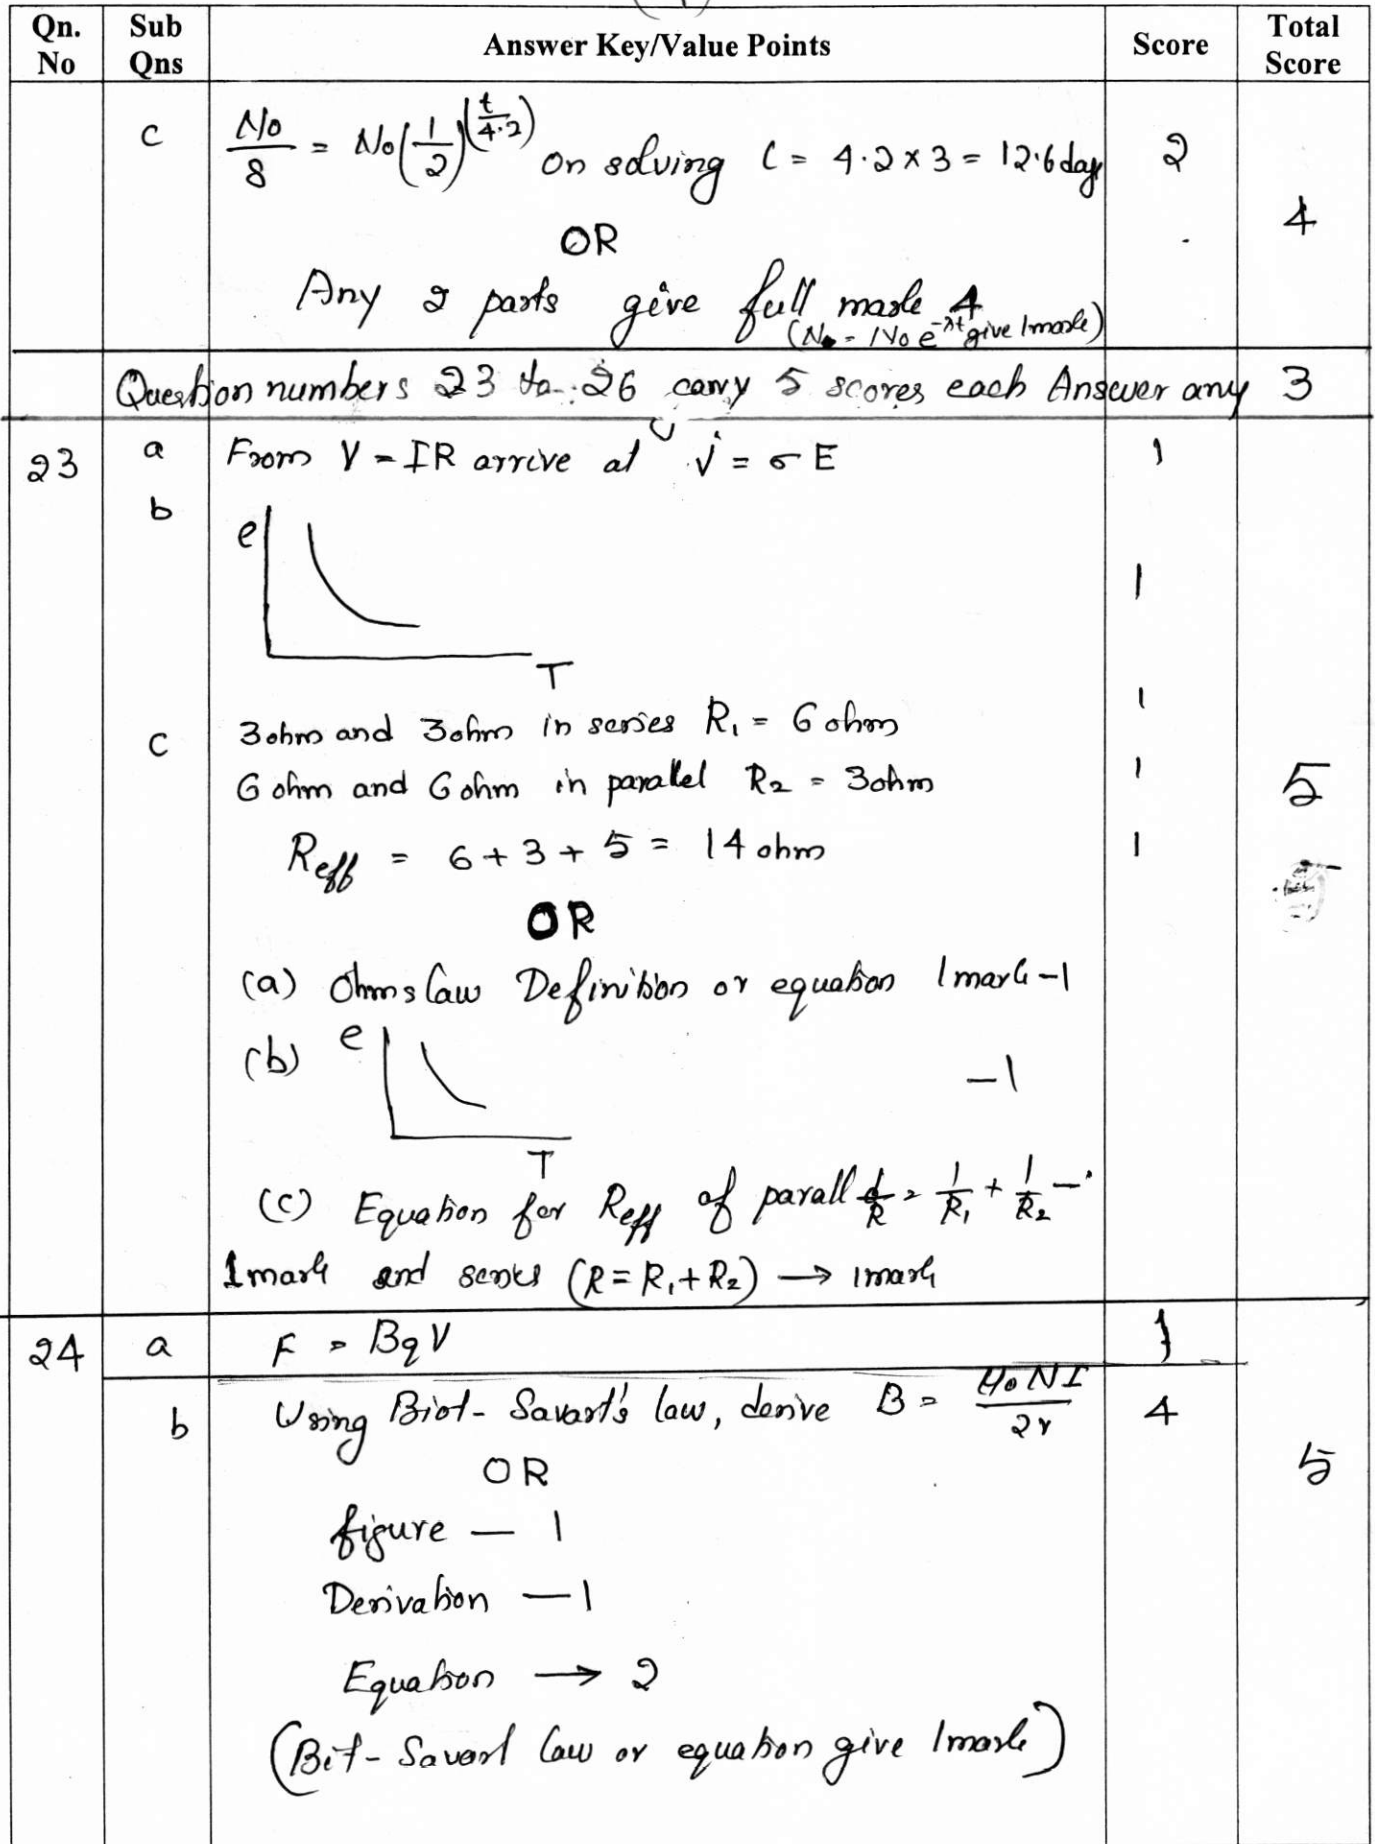 Qn. No | Sub Qns | Answer Key/Value Points | Score | Total Score
c | N₀/8 = N₀(1/2)^(t/4.2) on solving t = 4.2 × 3 = 12.6 days | 2
OR | 4
Any 2 parts give full mark 4
(N = N₀ e^-λt give 1 mark)
Question numbers 23 to 26 carry 5 scores each Answer any 3
23 | a | From V = IR arrive at j = σE | 1
b | e
1
T
1
c | 3 ohm and 3 ohm in series R₁ = 6 ohm
6 ohm and 6 ohm in parallel R₂ = 3 ohm | 1 | 5
R_eff = 6 + 3 + 5 = 14 ohm | 1
OR
(a) Ohms law Definition or equation 1 mark - 1
(b) e — 1
T
(c) Equation for R_eff of parall 1/R = 1/R₁ + 1/R₂ —
1 mark and series (R = R₁ + R₂) → 1 mark
24 | a | F = BqV | 1
b | Using Biot-Savart's law, derive B = μ₀NI/2r | 4
OR | 5
figure — 1
Derivation — 1
Equation → 2
(Bit-Savart law or equation give 1 mark)